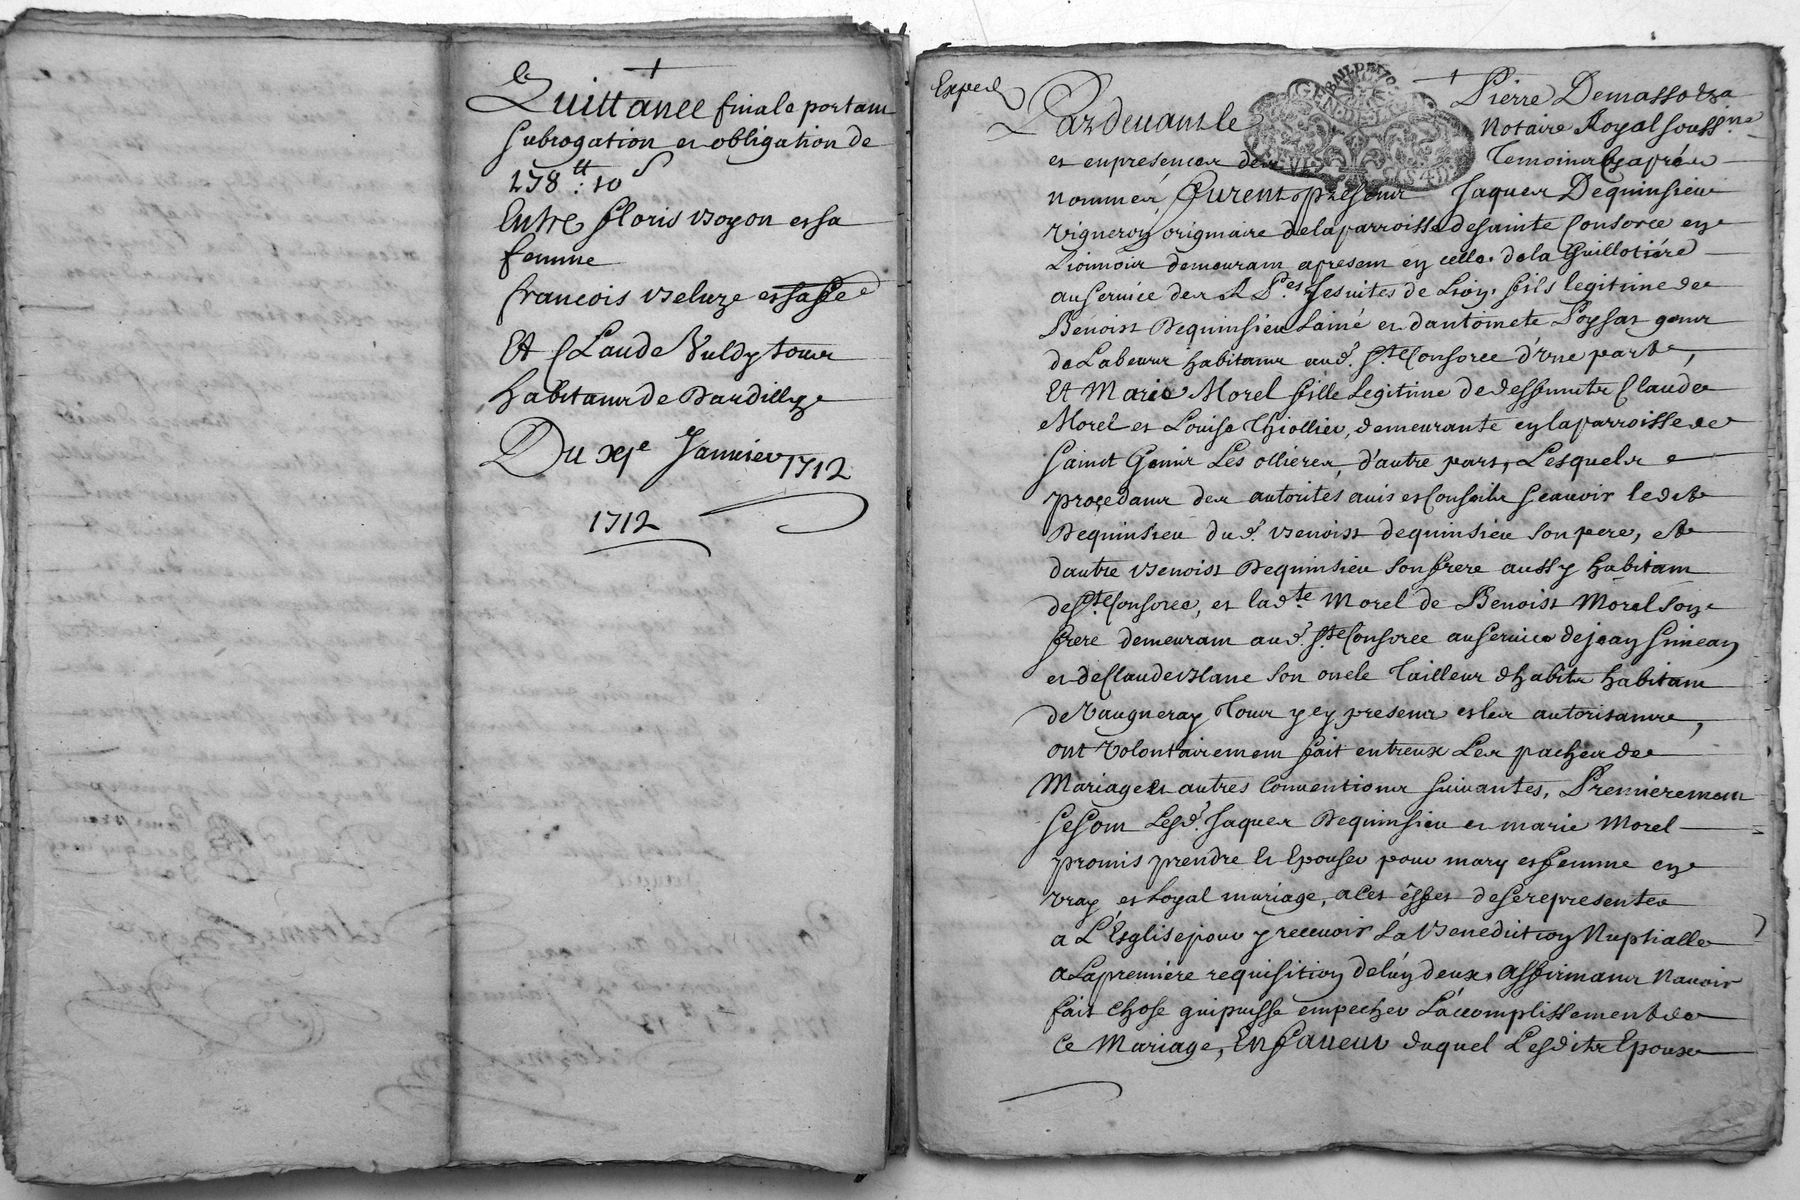 Quittance finale portant
subrogation et obligation de
178 tt : 10 s
Entre floris Voyon et sa
femme
francois veluze
Et Claude Vuldy tous
habitants de Dardilly
Du xje Janvier 1712
1712
Exped
Pardevant le Pierre Demasso
Notaire Royal soussne
et en presence des Temoins cy aprés
nommés, furent presents Jaques Dequinsieu
vigneron originaire de la parroisse de sainte Consorce en
Lionnois demeurant apresent en celle de la Guillotiére
au service des R Pes Jesuites de Lion, fils legitime de
Benoist Dequinsieu Lainé et dantoinete
de Labeur habitants aud. Ste Consorce d'une part,
Et Marie Morel fille Legitime de deffunts Claude
Morel et Louise Thiollier, demeurante en la parroisse de
saint Genis Les ollieres, d'autre part, Lesquels
procedants des autorités avis et Conseils scavoir ledit
Dequinsieu dud. Benoist dequinsieu son pere, et
dautre Benoist Dequinsieu son frere aussy habitant
de Ste Consorce, et lad.te Morel de Benoist Morel son
frere demeurant aud. Ste Consorce au service de jean Simean
et de Claude Blanc son oncle Tailleur dhabits habitant
de Vaugneray Tous y cy presents et les autorisants,
ont Volontairement fait entreux Les paches de
Mariage et autres Conventions suivantes, Premierement
se sont Lesd. Jaques Dequinsieu et marie Morel
promis prendre et Epouser pour mary et femme en
vray et Loyal mariage, a ces éffets de se representer
a L'Esglise pour y recevoir La Benediction Nuptialle
a La premiere requisition de lun deux, affirmants Navoir
fait chose qui puisse empecher L'accomplissement de
Ce Mariage, En faveur duquel Lesdits Epoux